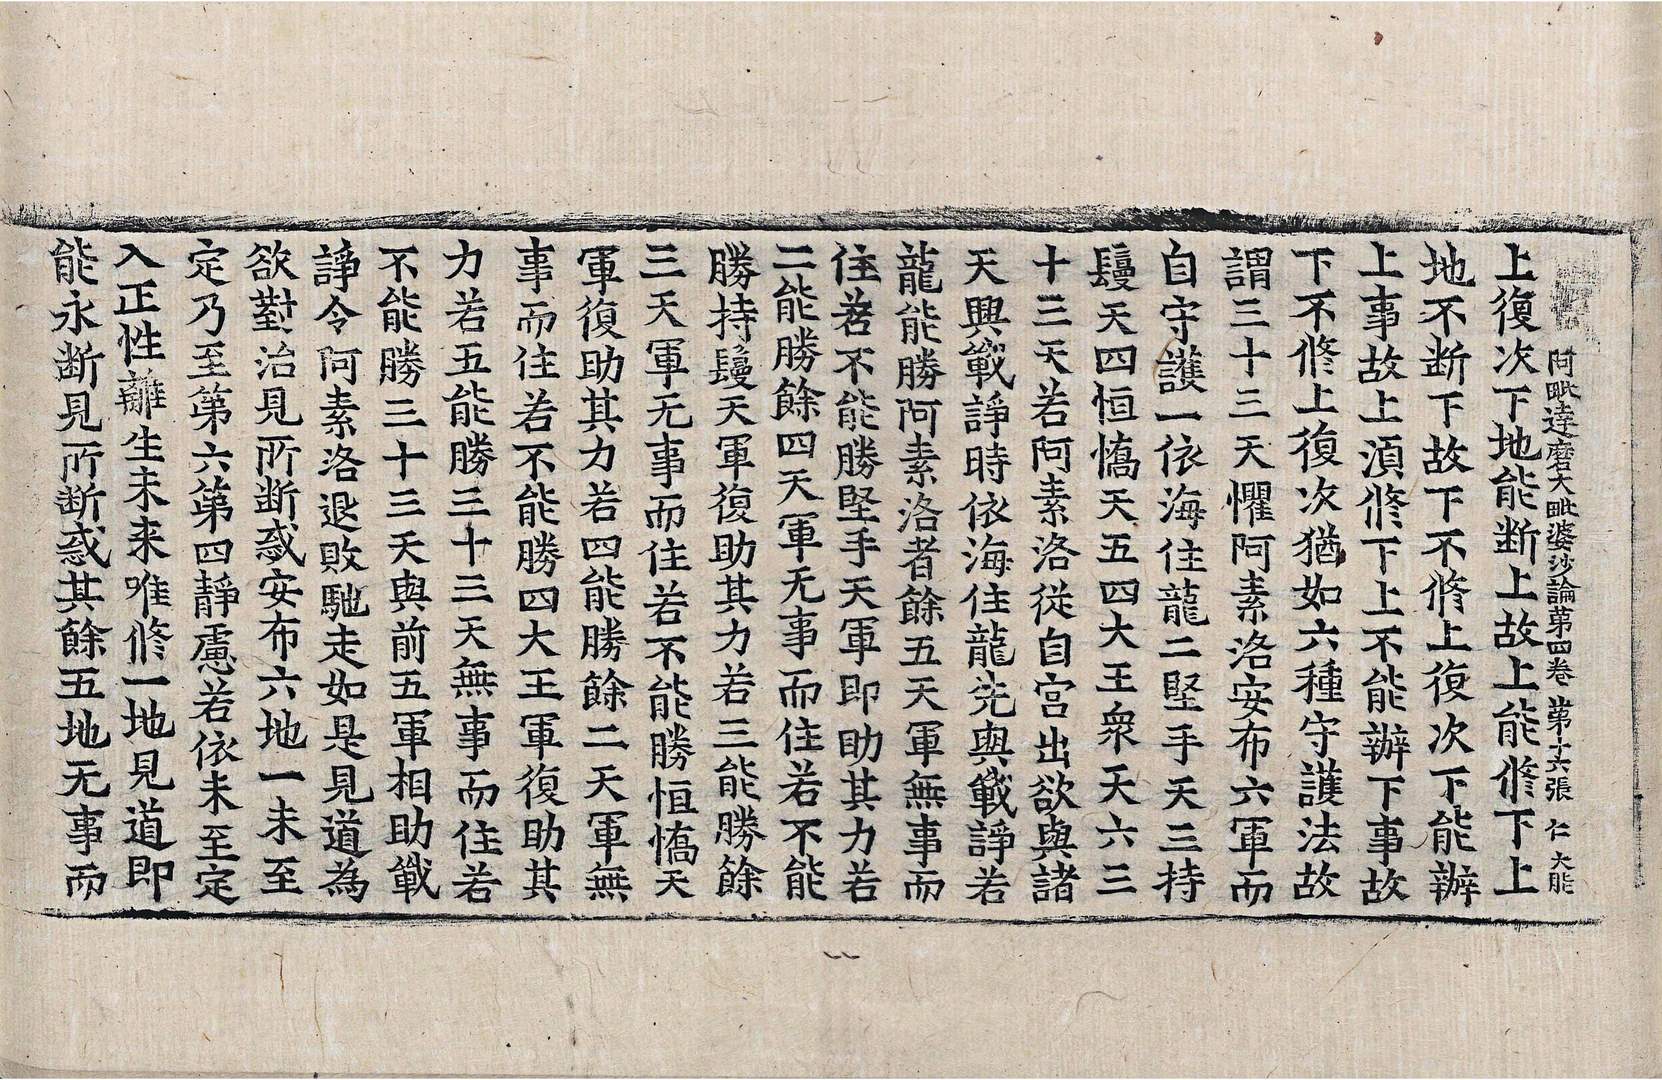 阿毗達磨大毗婆沙論第四卷 第十六張 仁 大能
上復次下地能断上故上能修下上
地不断下故下不修上復次下能辦
上事故上湏修下上不能辦下事故
下不修上復次猶如六種守護法故
謂三十三天懼阿素洛安布六軍而
自守護一依海住龍二堅手天三持
鬘天四恒憍天五四大王衆天六三
十三天若阿素洛從自宮出欲與諸
天興戰諍時依海住龍先與戰諍若
龍能勝阿素洛者餘五天軍無事而
住若不能勝堅手天軍即助其力若
二能勝餘四天軍无事而住若不能
勝持鬘天軍復助其力若三能勝餘
三天軍无事而住若不能勝恒憍天
軍復助其力若四能勝餘二天軍無
事而住若不能勝四大王軍復助其
力若五能勝三十三天無事而住若
不能勝三十三天與前五軍相助戰
諍令阿素洛退敗馳走如是見道為
欲對治見所断惑安布六地一未至
定乃至第六第四靜慮若依未至定
入正性離生未来唯修一地見道即
能永断見所断惑其餘五地无事而